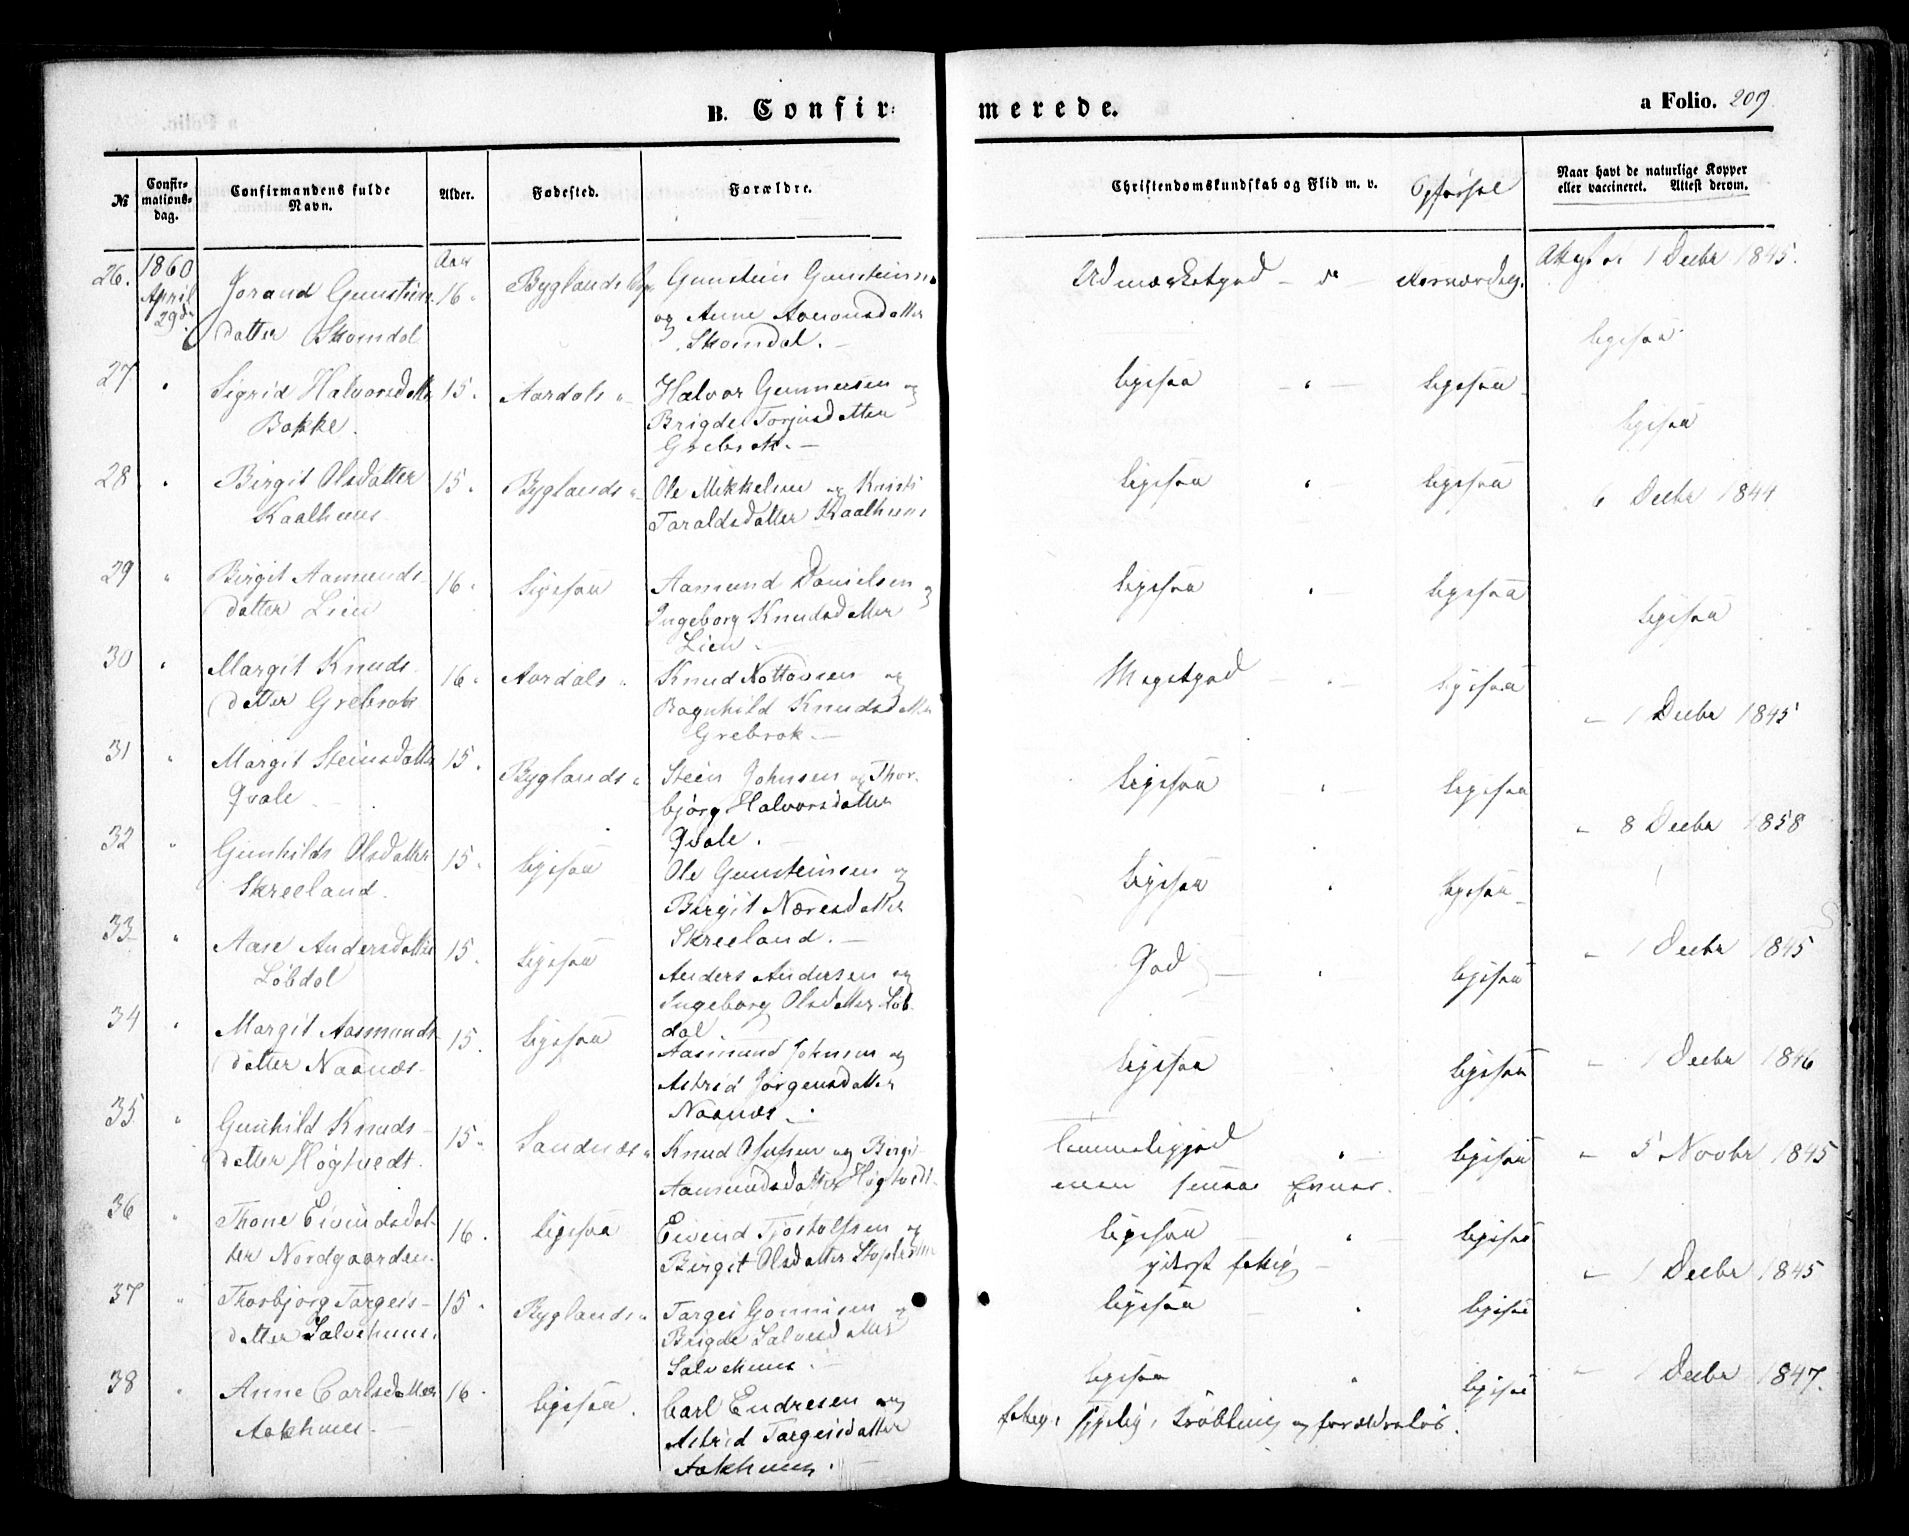 B. Confir-
merede.
a Folio. 209.
№
Confir-
mations-
dag.
Confirmandens fulde
Navn.
Alder.
Fødested.
Forældre.
Christendomskundskab og Flid m. v.
Opførsel
Naar havt de naturlige Kopper
eller vaccineret. Attest derom.
26.
1860
April
29de
Jorand Gunsteins
datter Skomdal
Aar
16
Byglands
Gunstein Gunsteinsen
og Anne Aanonsdatter
Skomdal.
Udmærketgod
1 Decbr 1845.
ligesaa
27
Sigrid Halvorsdatter
Bakke.
15
Aardals
Halvor Gunnersen og
Brigdet Torjusdatter
Grebrok.
ligesaa
ligesaa
ligesaa
28
Birgit Olsdatter
Kaalhuus
15
Byglands
Ole Mikkelsen og Kristi
Taraldsdatter Kaalhuus
ligesaa
ligesaa
Decbr 1844
29
Birgit Aamunds-
datter Lien
16
ligesaa
Aamund Danielsen og
Ingeborg Knudsdatter
Lien.
ligesaa
ligesaa
ligesaa
30
Margit Knuds-
datter Grebrok
16
Aardals
Knud Nottovsen og
Ragnhild Knudsdatter
Grebrok.
Megetgod
ligesaa
1 Decbr 1845
31
Margit Steinsdatter
Qvale
15
Byglands
Stein Johnsen og Thor-
bjørg Halvorsdatter
Qvale.
ligesaa
ligesaa
8 Decbr 1858
32
Gunhild Olsdatter
Skreeland.
15
ligesaa
Ole Gunsteinsen og
Birgit Næresdatter
Skreeland.
ligesaa
ligesaa
33
Aase Andersdatter
Løbdal
15
ligesaa
Anders Andersen og
Ingeborg Olsdatter Løb-
dal.
God
ligesaa
1 Decbr 1845
34
Margit Aasmunds-
datter Naanæs.
15
ligesaa
Aasmund Johnsen og
Astrid Jørgensdatter
Naanæs.
ligesaa
ligesaa
1 Decbr 1846
35
Gunhild Knuds-
datter Høgtvedt.
15
Sandnæs
Knud Olufsen og Birgit
Aamundsdatter Høgtvedt
Temmeliggod
ligesaa
5 Novbr 1845
36
Thone Eivindsdat-
ter Nordgaarden.
16
ligesaa
Eivind Tjostolfsen og
Birgit Olsdatter
ligesaa
yderst fattig
ligesaa
1 Decbr 1845
37
Thorbjørg Targeis-
datter Salvehuus.
15
Byglands
Targei Gonnisen og
Brigde Salvesdatter
Salvehuus.
ligesaa
ligesaa
38
Anne Carlsdatter
Aakhuus.
16
ligesaa
Carl Endresen og
Astrid Targeisdatter
Aakhuus.
ligesaa
ligesaa
1 Decbr 1847.
fattig, og forældreløs.